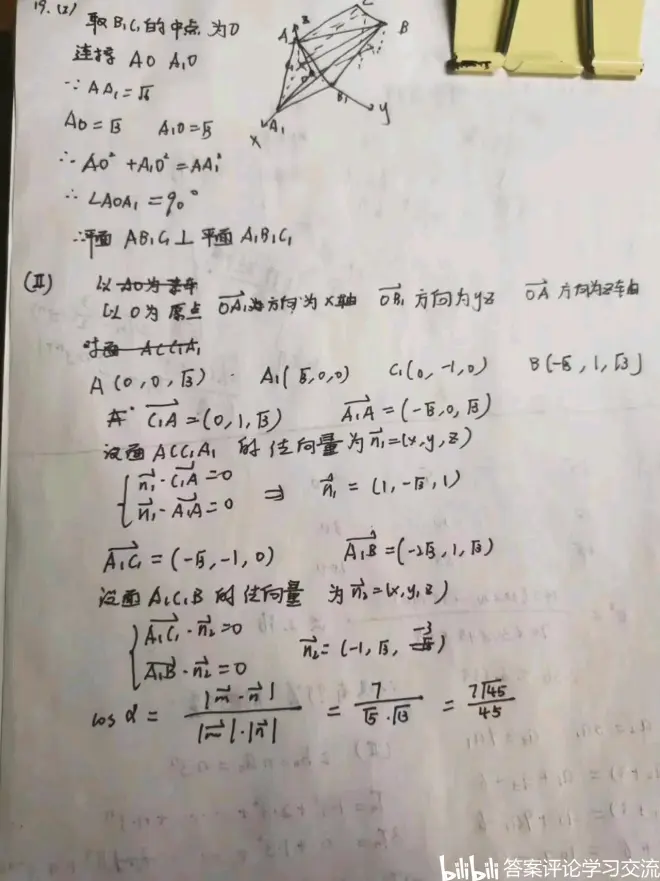 19.(I)
取B₁C₁的中点为O
连接 AO A₁O
∵AA₁=√6
AO=√3 A₁O=√3
∴AO²+A₁O²=AA₁²
∴∠AOA₁=90°
∴平面AB₁C₁⊥平面A₁B₁C₁
A z C B
B₁ y
X A₁
(II)
以O为原点 OA₁为方向为X轴 OB₁方向为yz OA方向为z轴
对面ACC₁A₁
A(0,0,√3) A₁(√3,0,0) C₁(0,-1,0) B(-√3,1,√3)
C₁A=(0,1,√3) A₁A=(-√3,0,√3)
设面ACC₁A₁的法向量为n₁=(x,y,z)
n₁·C₁A=0
n₁·A₁A=0 ⇒ n₁=(1,-√3,1)
A₁C₁=(-√3,-1,0) A₁B=(-2√3,1,√3)
设面A₁C₁B的法向量为n₂=(x,y,z)
A₁C₁·n₂=0
A₁B·n₂=0 n₂=(-1,√3,-3/√3)
cosα=|m·n|/|m|·|n|=7/√5·√13=7√45/45
bilibili 答案评论学习交流